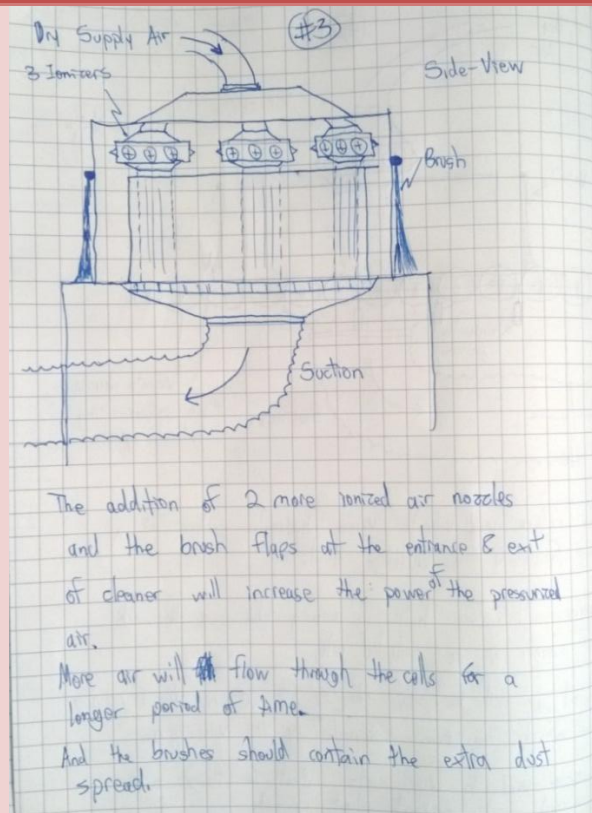 #3
Dry Supply Air
3 Ionizers
Side-View
Brush
Suction
The addition of 2 more ionized air nozzles
and the brush flaps at the entrance & exit
of cleaner will increase the power of the pressurized
air.
More air will flow through the cells for a
longer period of time.
And the brushes should contain the extra dust
spread.